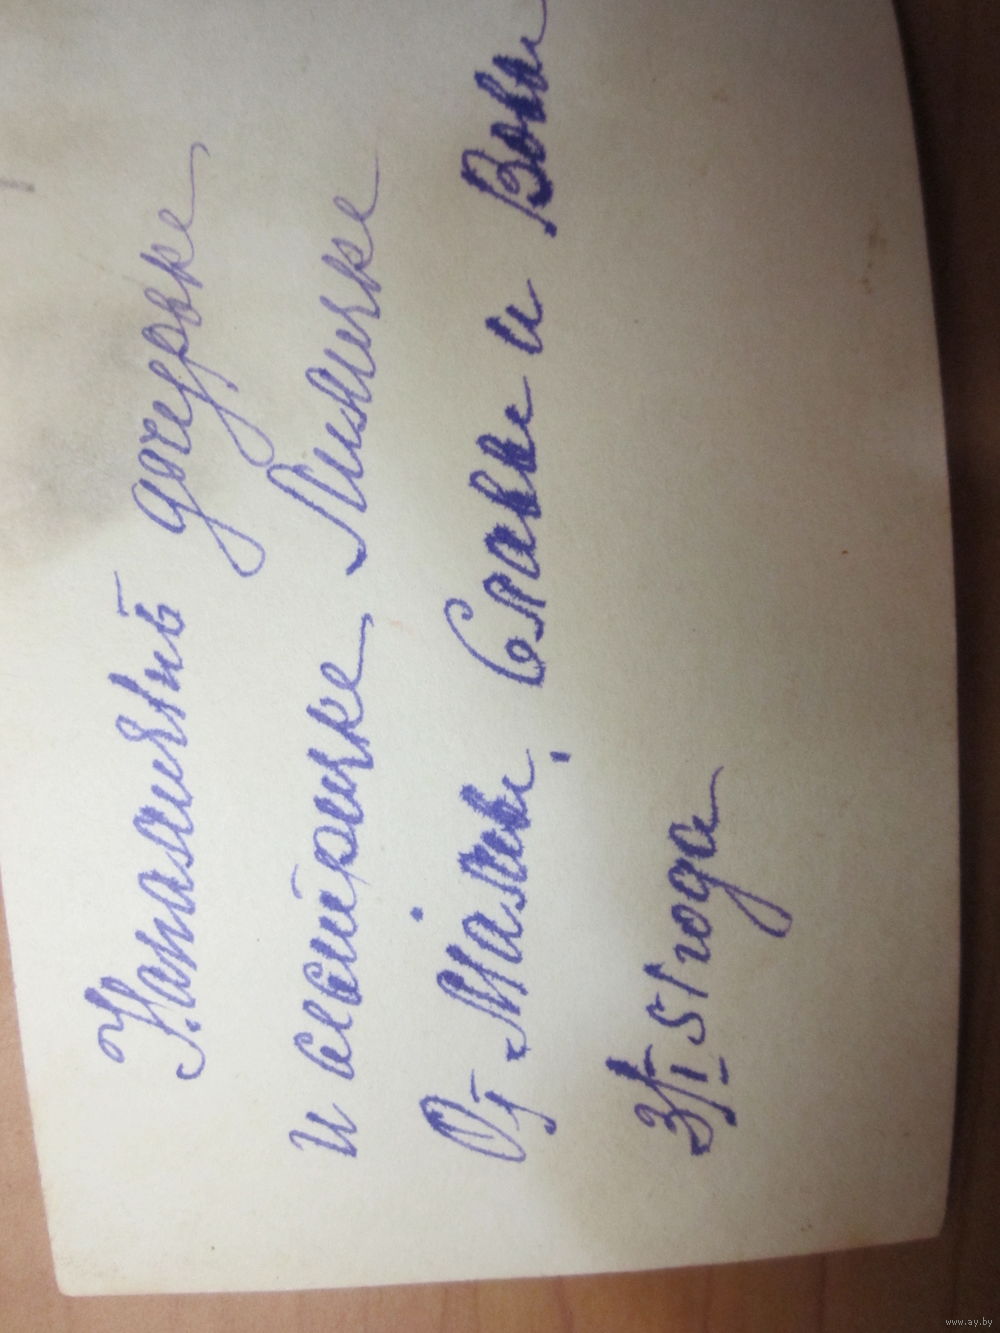 На память дочурке
и сестричке Линочке
От Мамы, Славы и Вовы
3/I 51 года
www.ay.by